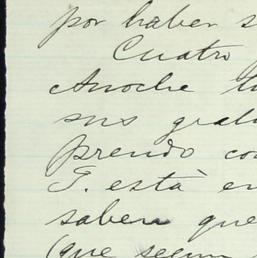 por haber s
Cuatro
Anoche tu
sus grat
prendo con
G. està en
saben que
(que segun